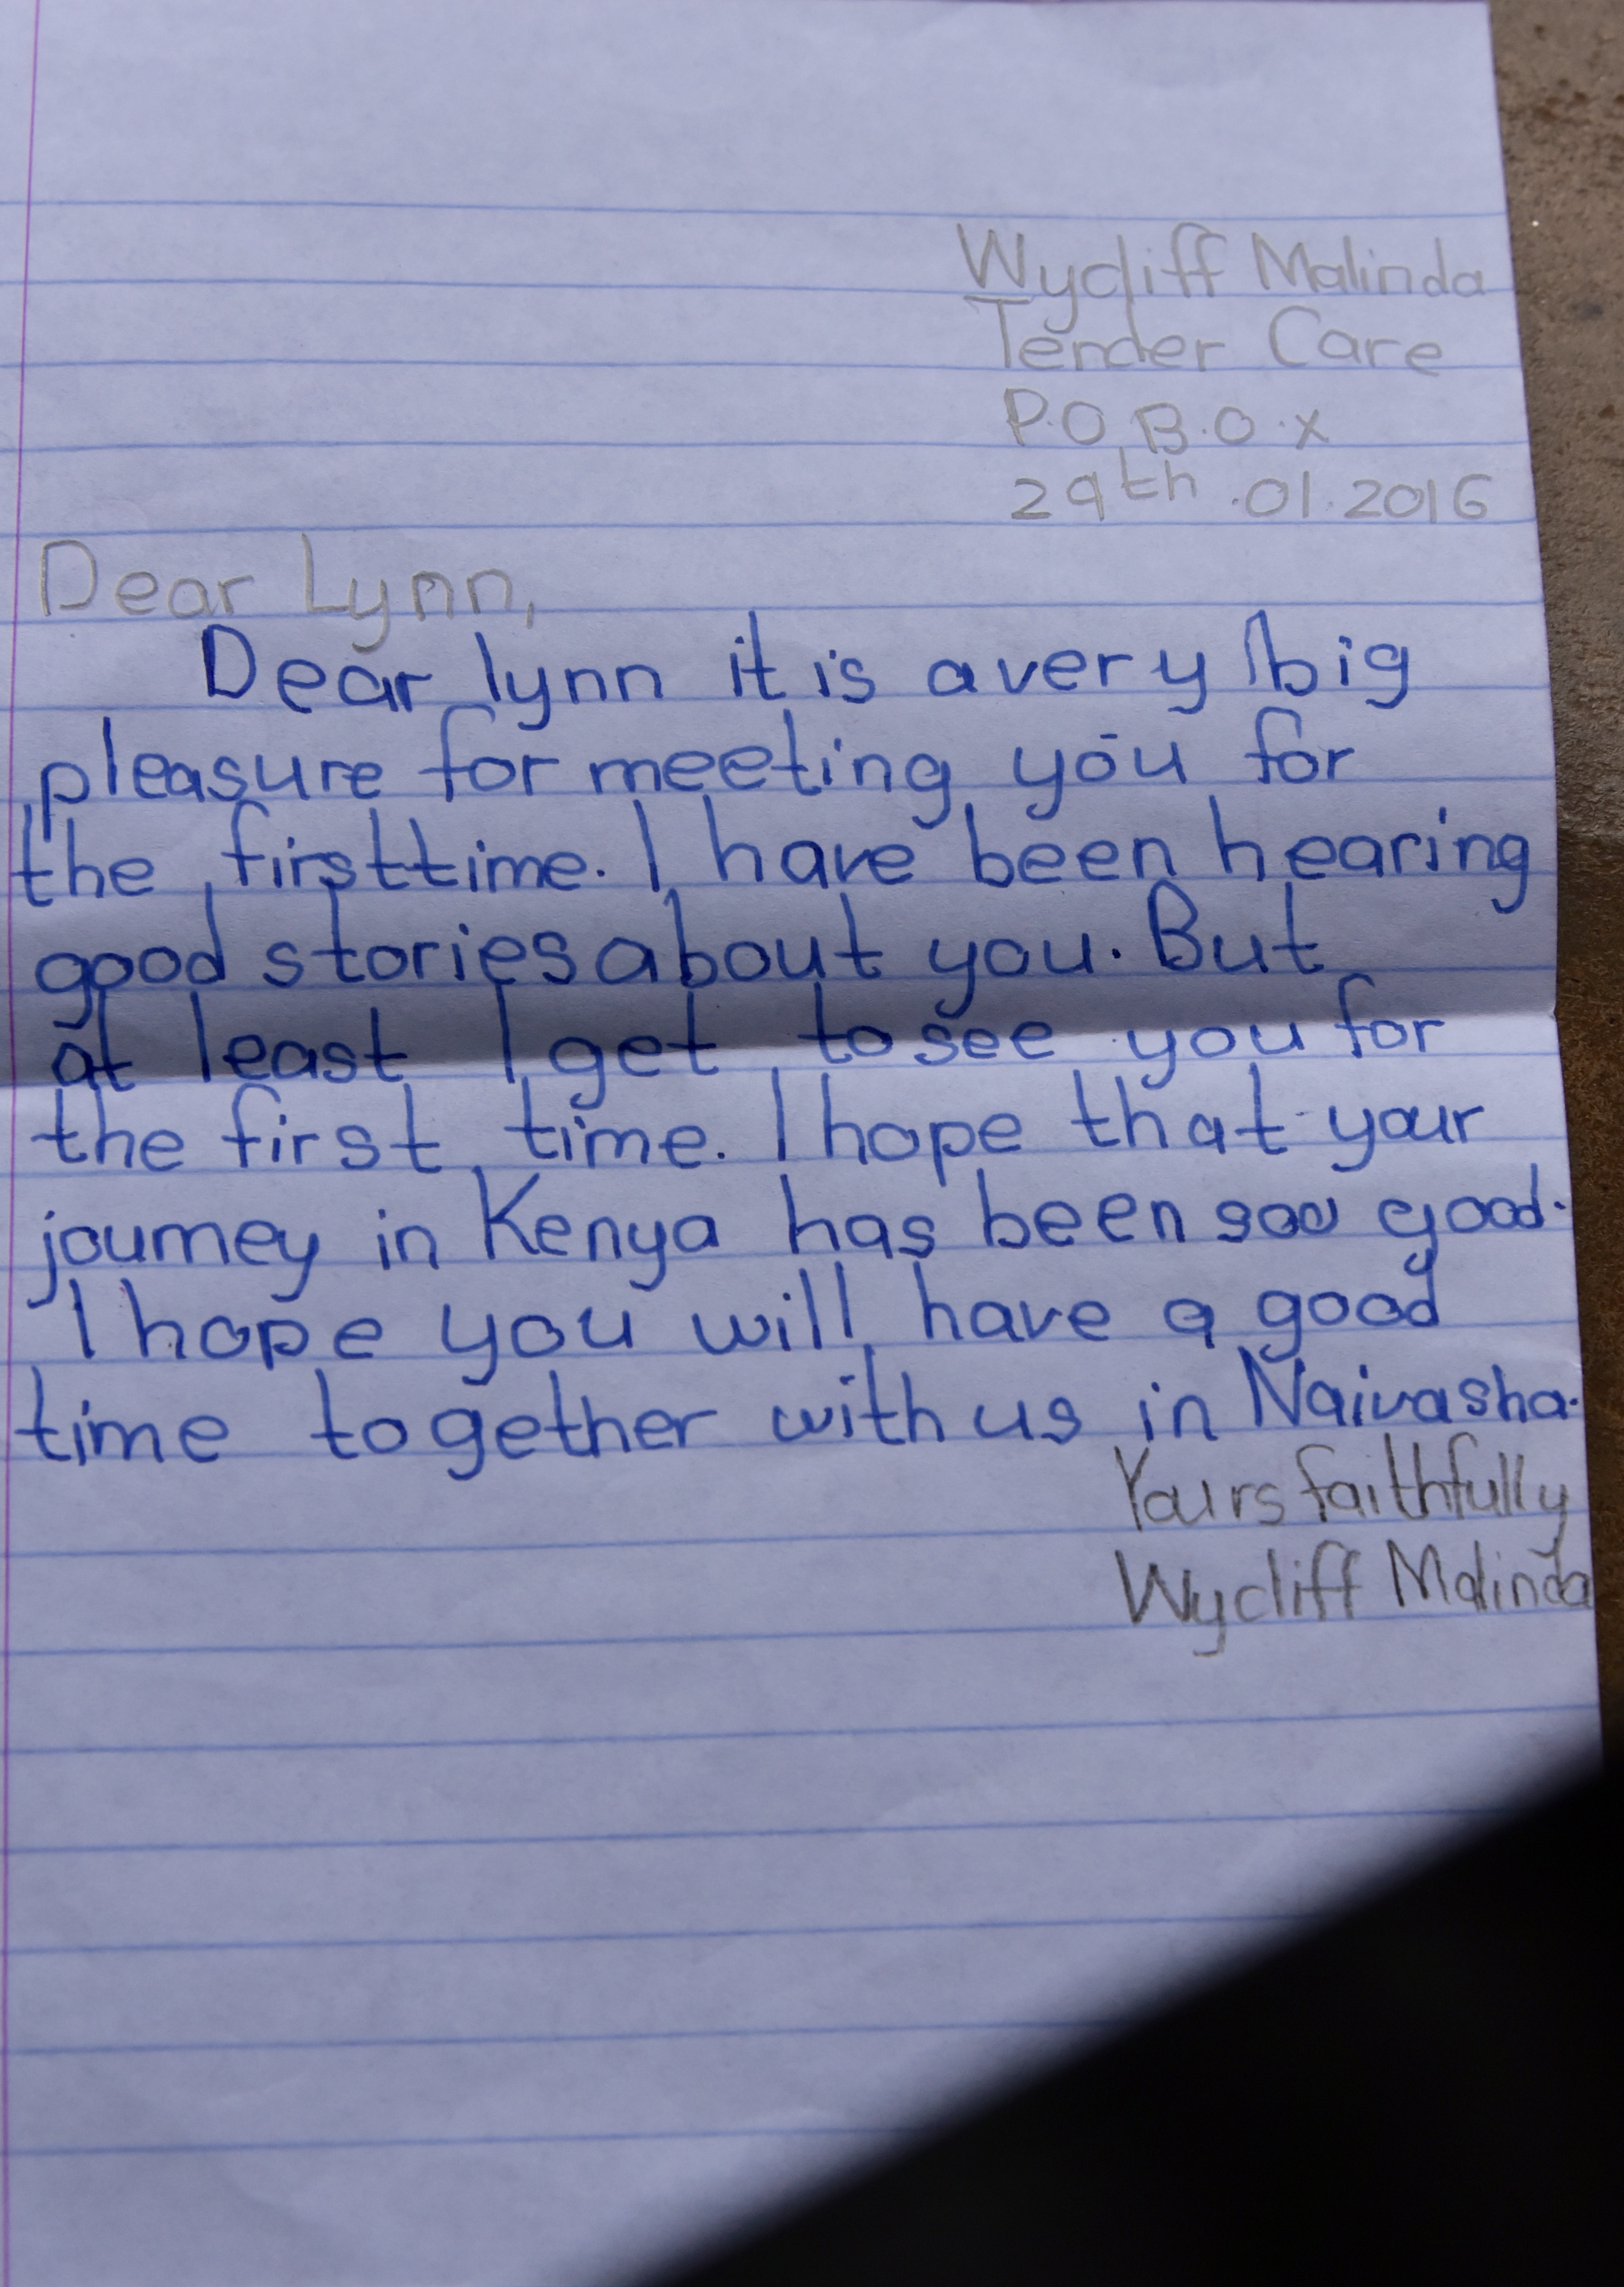 Wycliff Malinda
Tender Care
P.O B.O.X
29th .01.2016
Dear Lynn,
Dear lynn it is a very big
pleasure for meeting you for
the firsttime. I have been hearing
good stories about you. But
at least I get to see you for
the first time. I hope that your
journey in Kenya has been soo good.
I hope you will have a good
time together with us in Naivasha.
Yours faithfully
Wycliff Malinda